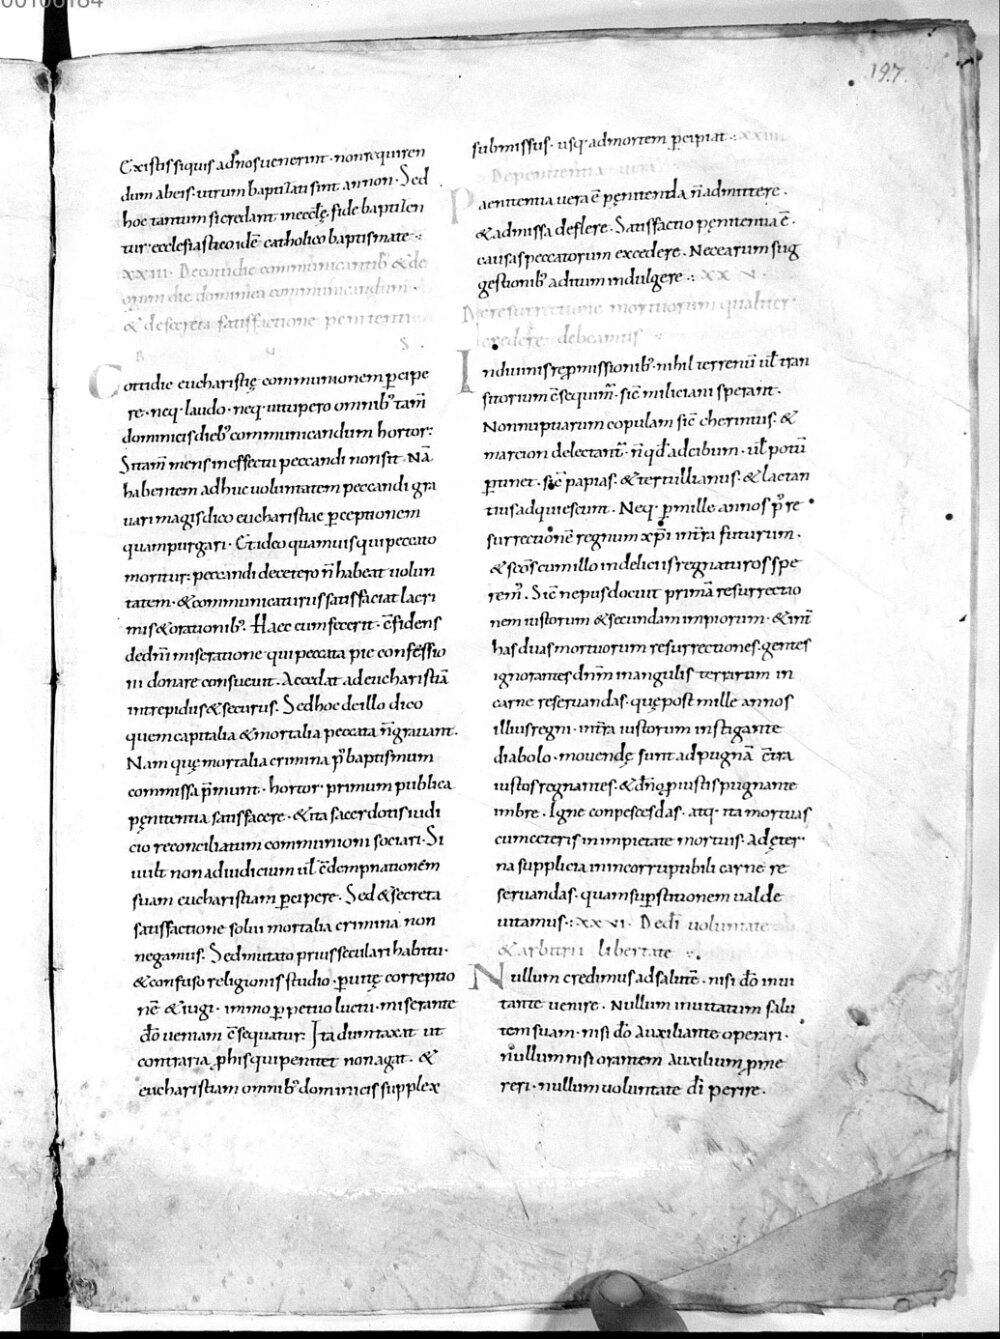 00106184
197.
Ex istis siquis ad nos uenerint · non requiren
dum ab eis · utrum baptizati sint an non · Sed
hoc tantum si credant in eccłę fide baptizen
tur · ecclesiastico idē catholico baptismate ·:
xxiii · De cottidie communicantib; & de
omni die dominica communicandum ·
& de secreta satisfactione penitenti
Cottidie eucharistię communionem p̄cipe
re · neq· laudo · neq· uitupero omnib; tam̄
dominicis dieb; communicandum hortor ·
Si tam̄ mens in effectu peccandi non sit · Nā
habentem adhuc uoluntatem peccandi gra
uari magis dico eucharistiae p̄ceptionem
quam purgari · Et ideo quamuis qui peccato
moritur · peccandi de cetero n̄ habeat uolun
tatem · & communicaturus satisfaciat lacri
mis & orationib; · Haec cum fecerit · c̄fidens
de dn̄i miseratione qui peccata pie confessio
ni donare consueuit · Accedat ad eucharistiā
intrepidus & securus · Sed hoc de illo dico
quem capitalia & mortalia peccata n̄ grauant ·
Nam quę mortalia crimina p̄ baptismum
commissa p̄munt · hortor · primum publica
pęnitentia satisfacere · & ita sacerdotis iudi
cio reconciliatum communioni sociari · Si
uult non ad iudicium ul̄ c̄dempnationem
suam eucharistiam p̄cipere · Sed & secreta
satisfactione solui mortalia crimina non
negamus · Sed mutato prius seculari habitu ·
& confuso religionis studio · p̄ uitę correptio
nē & iugi · immo p̄petuo luctu · miserante
dō ueniam c̄sequatur · Ita dumtaxat ut
contraria p̄ his qui penitet non agat · &
eucharistiam omnib; dominicis supplex
submissus · usq· ad mortem p̄cipiat ·: xxiiii
De penitentia uera
Paenitentia uera ē pęnitenda n̄ admittere ·
& admissa deflere · Satisfactio pęnitentia ē ·
causas peccatorum excedere · Nec earum sug
gestionib; aditum indulgere ·: xx v ·
De resurrectione mortuorum qualiter
credere debeamus
In diuinis rep̄missionib; · nihil terrenū ul̄ tran
sitorium c̄sequim̄ · sic̄ miliciani sperant ·
Non nuptiarum copulam sic̄ cherintus · &
marcion delectant̄ · n̄ qđ ad cibum · ul̄ potū
p̄tinet · sic̄ papias · & tertullianus · & lactan
tius adquiescunt · Neq· p̄ mille annos p̄ re
surrectionē regnum xp̄i in tr̄a futurum ·
& sc̄os cum illo in deliciis regnaturos spe
rem̄ · Sic̄ nepus docuit primā resurrectio
nem iustorum & secundam impiorum · & int̄
has duas mortuorum resurrectiones · gentes
ignorantes dn̄m in angulis terrarum in
carne reseruandas · quę post mille annos
illius regni · in tr̄a iustorum instigante
diabolo · mouendę sunt ad pugnā c̄tra
iustos regnantes · & dn̄o p̄ iustis pugnante
imbre · Igne conpescesdas · atq· ita mortuas
cum ceteris in impietate mortuis · Ad ęter
na supplicia in incorruptibili carne re
seruandas · quam sup̄stitionem ualde
uitamus ·: xx vi · De dī uoluntate
& arbitrii libertate
Nullum credimus ad salutē · nisi dō inui
tante uenire · Nullum inuitatum salu
tem suam · nisi dō auxiliante operari ·
Nullum nisi orantem auxilium p̄me
reri · nullum uoluntate dī perire ·